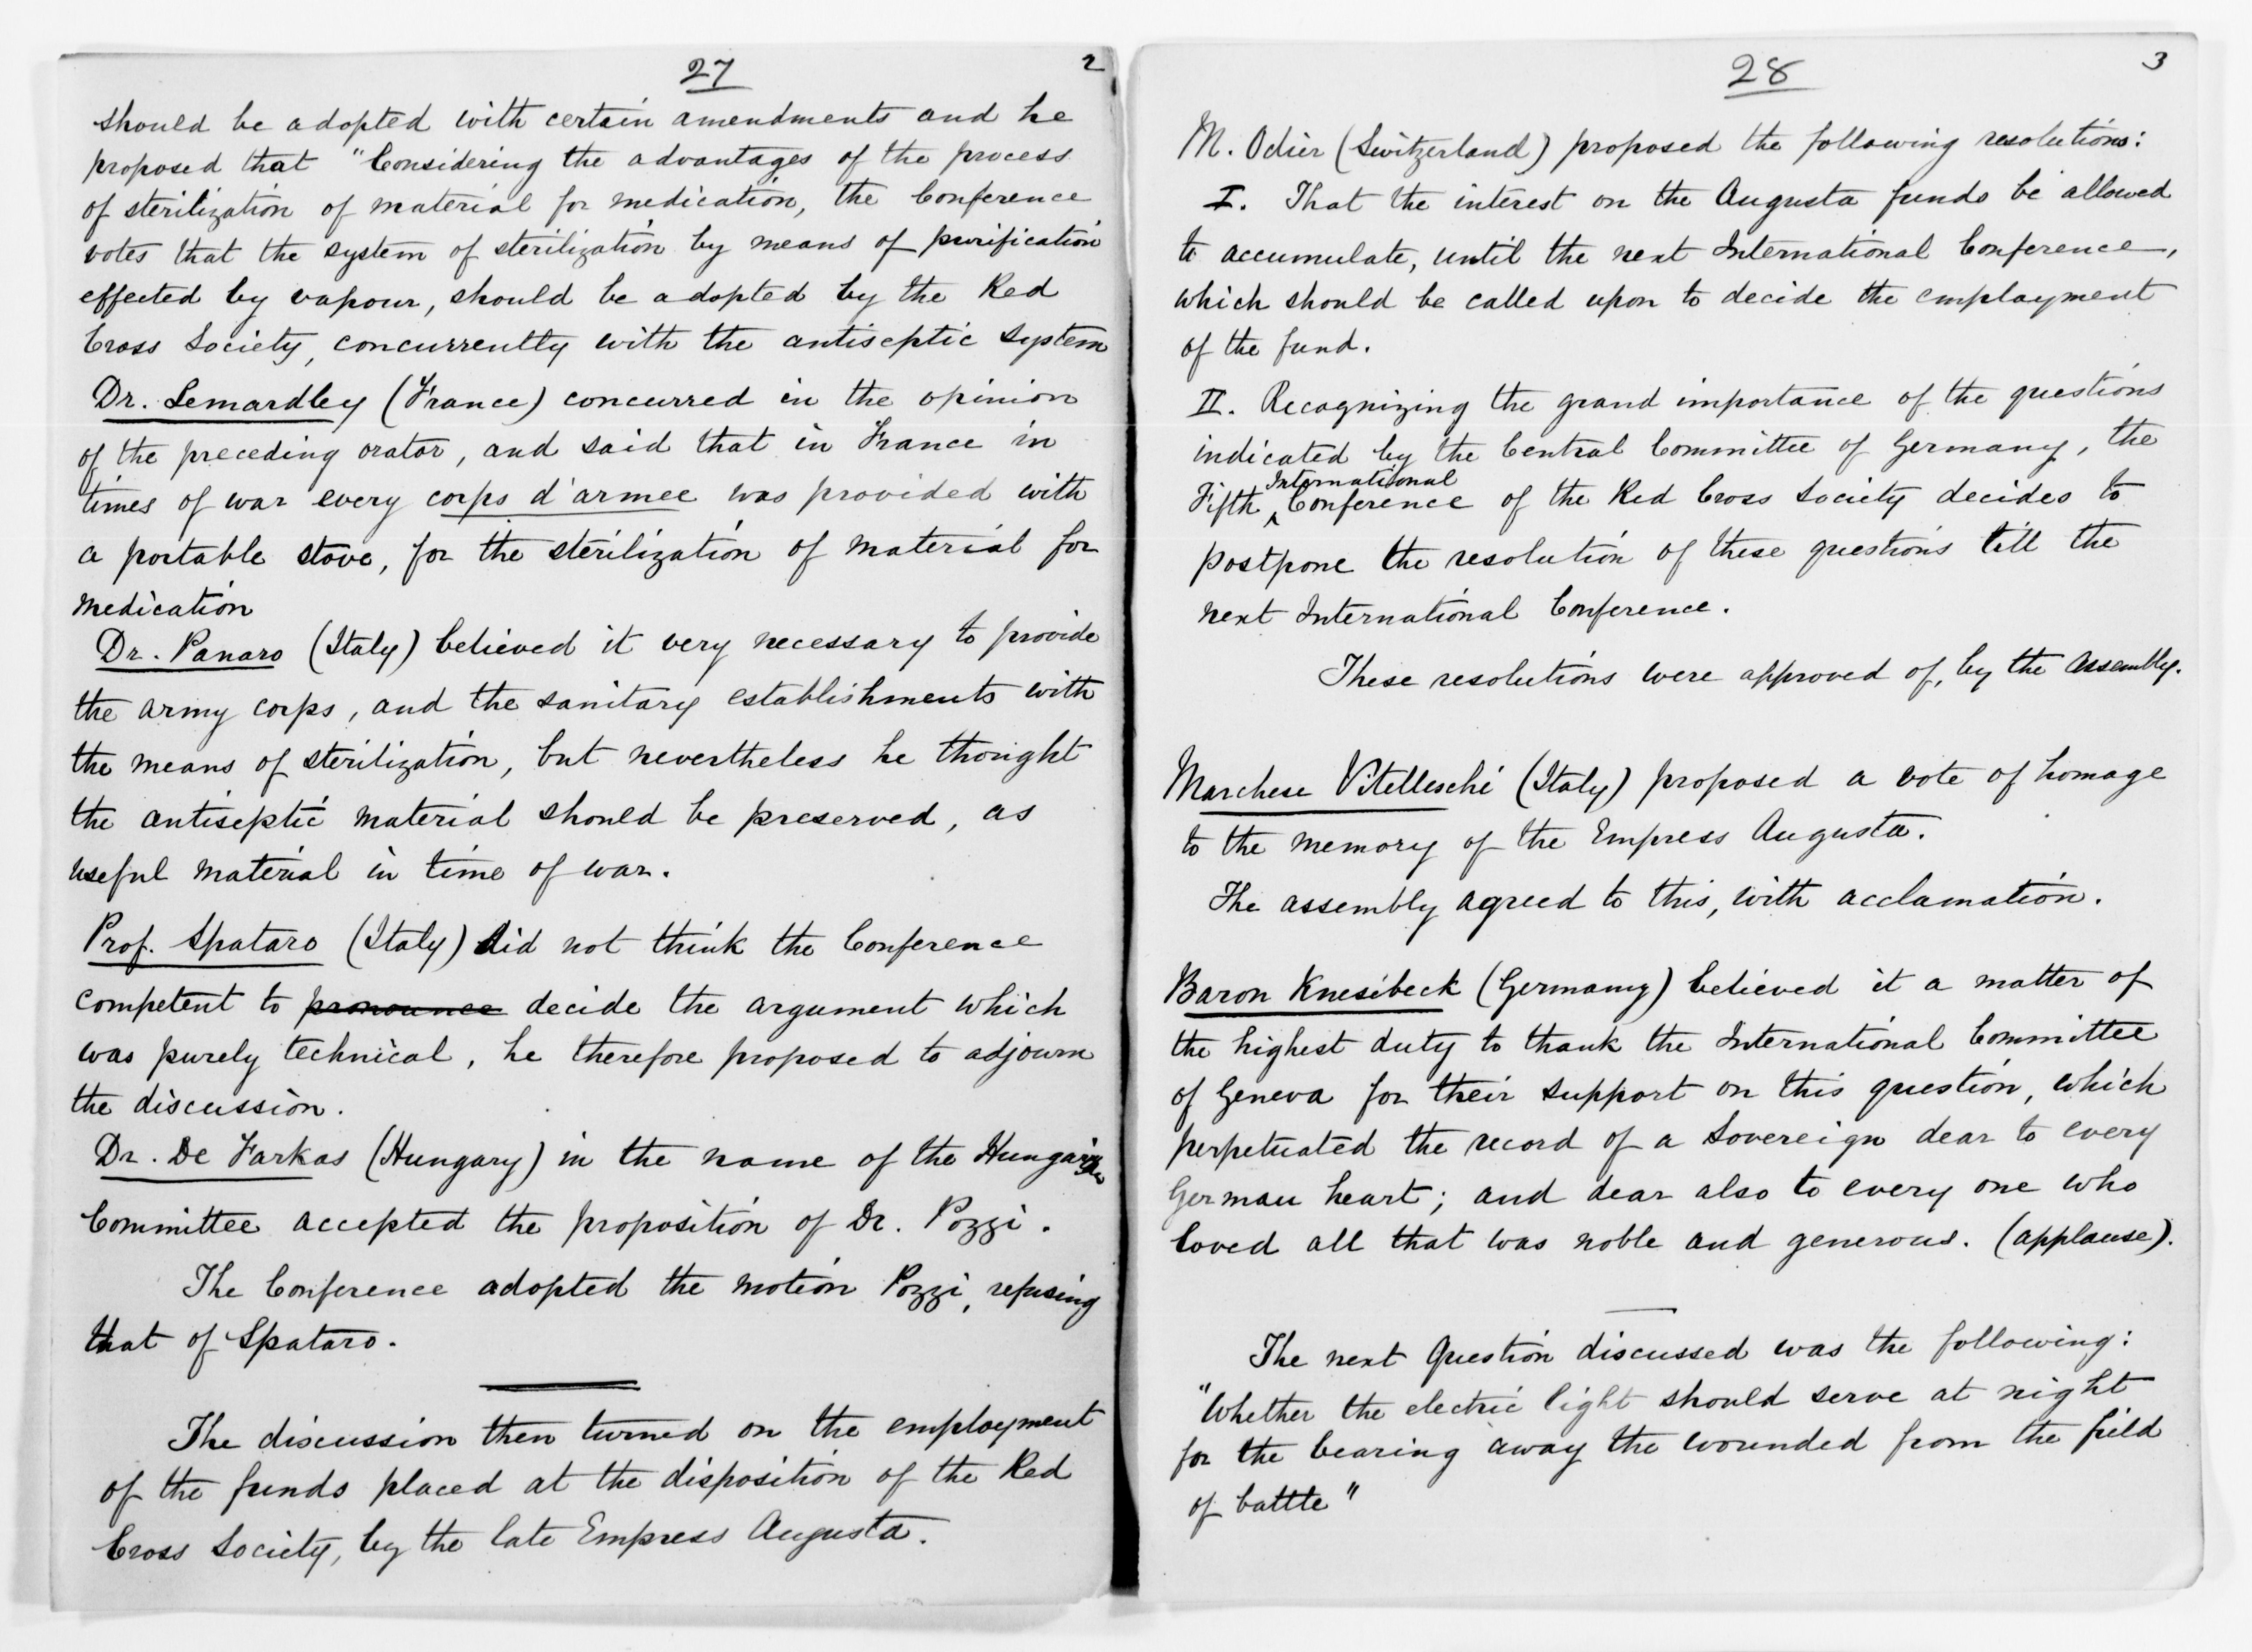 27
2
should be adopted with certain amendments and he
proposed that "Considering the advantages of the process
of sterilization of material for medication, the Conference
votes that the system of sterilization by means of purification
effected by vapour, should be adopted by the Red
Cross Society, concurrently with the antiseptic system
Dr. Lemardley (France) concurred in the opinion
of the preceding orator, and said that in France in
times of war every corps d'armee was provided with
a portable stove, for the sterilization of material for
medication
Dr. Panaro (Italy) believed it very necessary to provide
the army corps, and the sanitary establishments with
the means of sterilization, but nevertheless he thought
the antiseptic material should be preserved, as
useful material in time of war.
Prof. Spataro (Italy) did not think the Conference
competent to pronounce decide the argument which
was purely technical, he therefore proposed to adjourn
the discussion.
Dr. De Farkas (Hungary) in the name of the Hungarian
Committee accepted the proposition of Dr. Pozzi.
The Conference adopted the motion Pozzi, refusing
that of Spataro.
The discussion then turned on the employment
of the funds placed at the disposition of the Red
Cross Society, by the late Empress Augusta.
28
3
M. Odier (Switzerland) proposed the following resolutions:
I. That the interest on the Augusta funds be allowed
to accumulate, until the next International Conference,
which should be called upon to decide the employment
of the fund.
II. Recognizing the grand importance of the questions
indicated by the Central Committee of Germany, the
International
Fifth ^ Conference of the Red Cross Society decides to
postpone the resolution of these questions till the
next International Conference.
These resolutions were approved of, by the Assembly.
Marchese Vitelleschi (Italy) proposed a vote of homage
to the memory of the Empress Augusta.
The assembly agreed to this, with acclamation.
Baron Knesibeck (Germany) believed it a matter of
the highest duty to thank the International Committee
of Geneva for their support on this question, which
perpetuated the record of a Sovereign dear to every
German heart; and dear also to every one who
loved all that was noble and generous. (applause).
The next Question discussed was the following:
"Whether the electric light should serve at night
for the bearing away the wounded from the field
of battle"